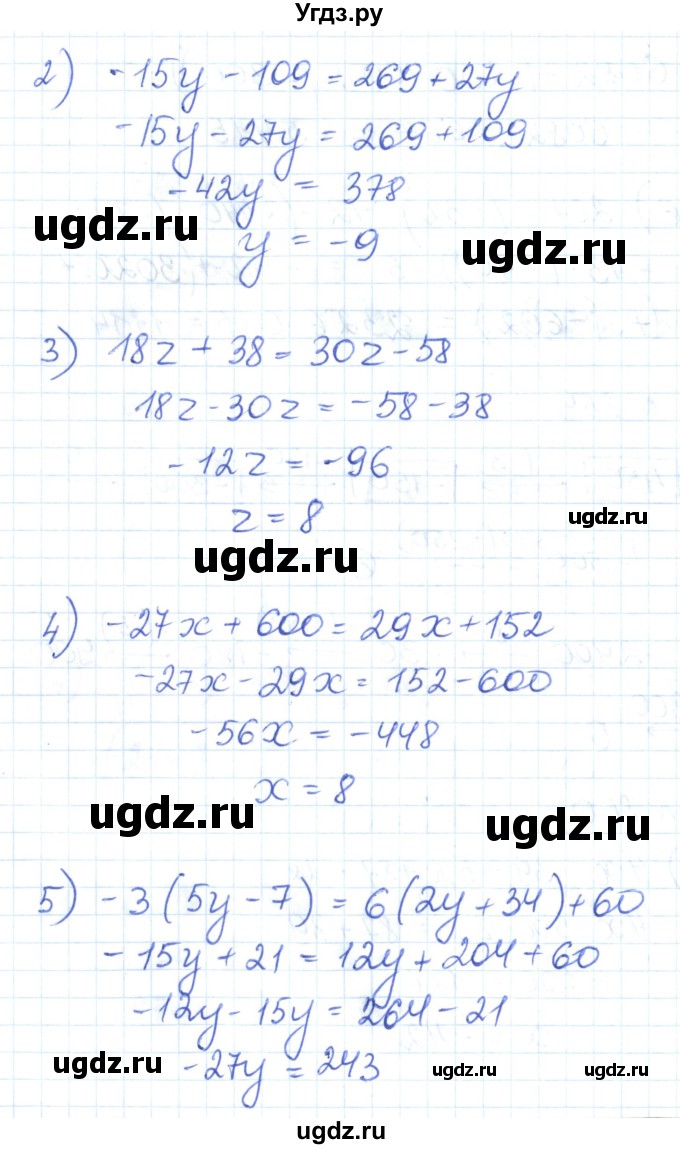 Угдз.ру
2) -15y - 109 = 269 + 27y
-15y - 27y = 269 + 109
-42y = 378
ugdz.ru
y = -9
ugdz.ru
3) 18z + 38 = 30z - 58
18z - 30z = -58 - 38
-12z = -96
z = 8
ugdz.ru
ugdz.ru
4) -27x + 600 = 29x + 152
-27x - 29x = 152 - 600
-56x = -448
x = 8
ugdz.ru
ugdz.ru
5) -3(5y - 7) = 6(2y + 34) + 60
-15y + 21 = 12y + 204 + 60
-12y - 15y = 264 - 21
ugdz.ru
-27y = 243
ugdz.ru
ugdz.ru
ugdz.ru